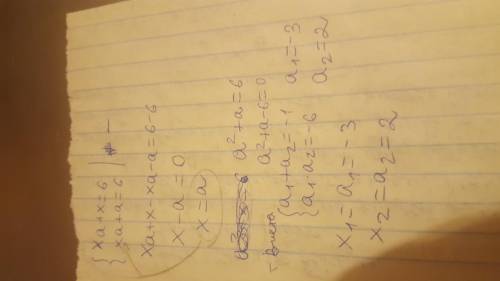 { xa+x=6 | −
xa+a=6
xa+x-xa-a=6-6
x-a=0
x=a
a²+a=6
a²+a-6=0
Виета
{ a₁+a₂=-1
a₁·a₂=-6
a₁=-3
a₂=2
x₁=a₁=-3
x₂=a₂=2